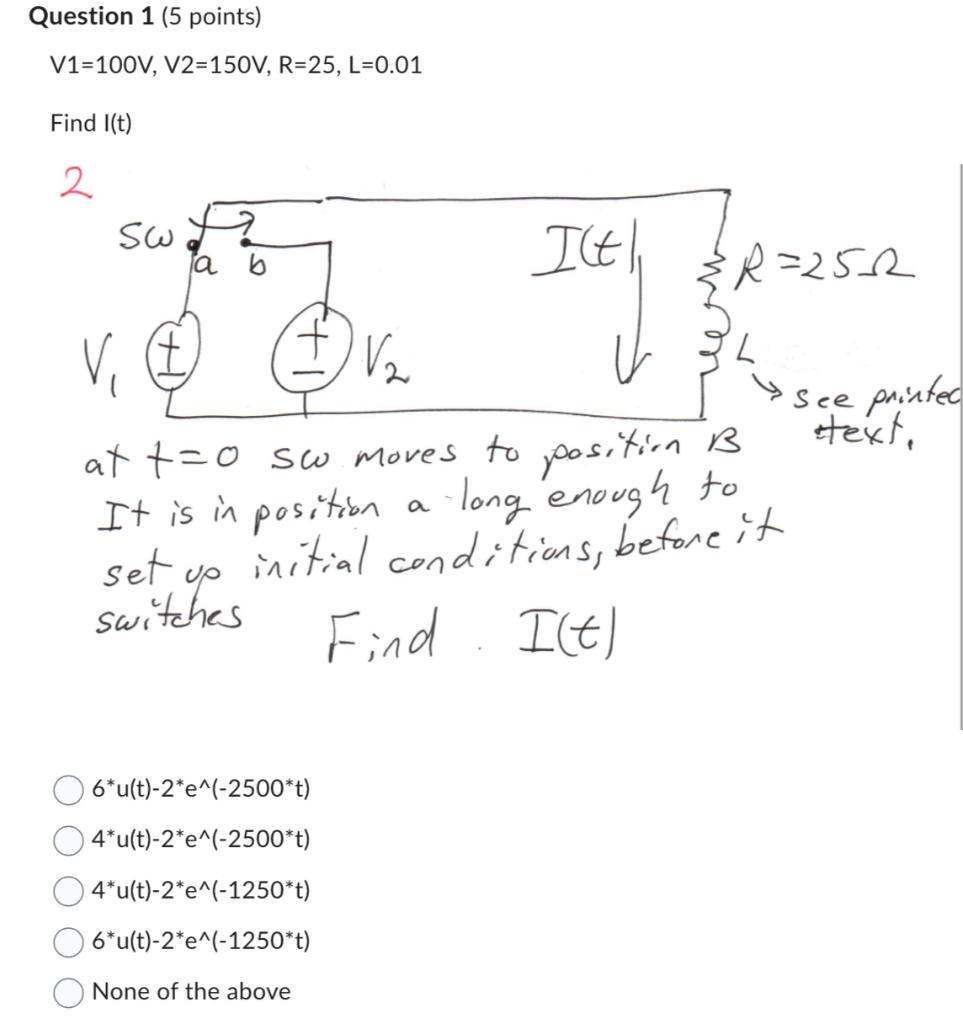 Question 1 (5 points)
V1=100V, V2=150V, R=25, L=0.01
Find I(t)
2
SW
a b
I(t)
R=25Ω
V1
+
-
+
-
V2
L
see printed
text.
at t=0 sw moves to position B
It is in position a long enough to
set up initial conditions, before it
switches
Find I(t)
6*u(t)-2*e^(-2500*t)
4*u(t)-2*e^(-2500*t)
4*u(t)-2*e^(-1250*t)
6*u(t)-2*e^(-1250*t)
None of the above